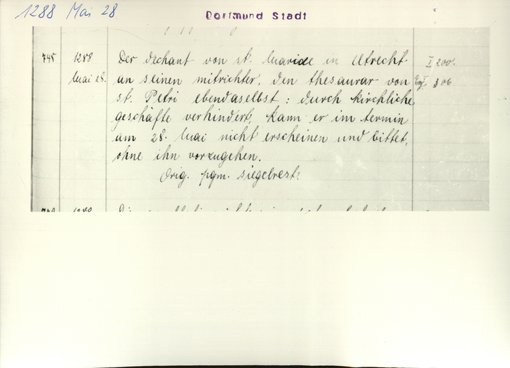 1288 Mai 28
Dortmund Stadt
745 1288 Der dechant von st. Mariae in Utrecht I 200.
Mai 28. an seinen mitrichter, den thesaurar von 306
st. Petri ebendaselbst: durch kirchliche
geschäfte verhindert, kann er im termin
am 28. Mai nicht erscheinen und bittet,
ohne ihn vorzugehen.
Orig. pgm. siegelrest.